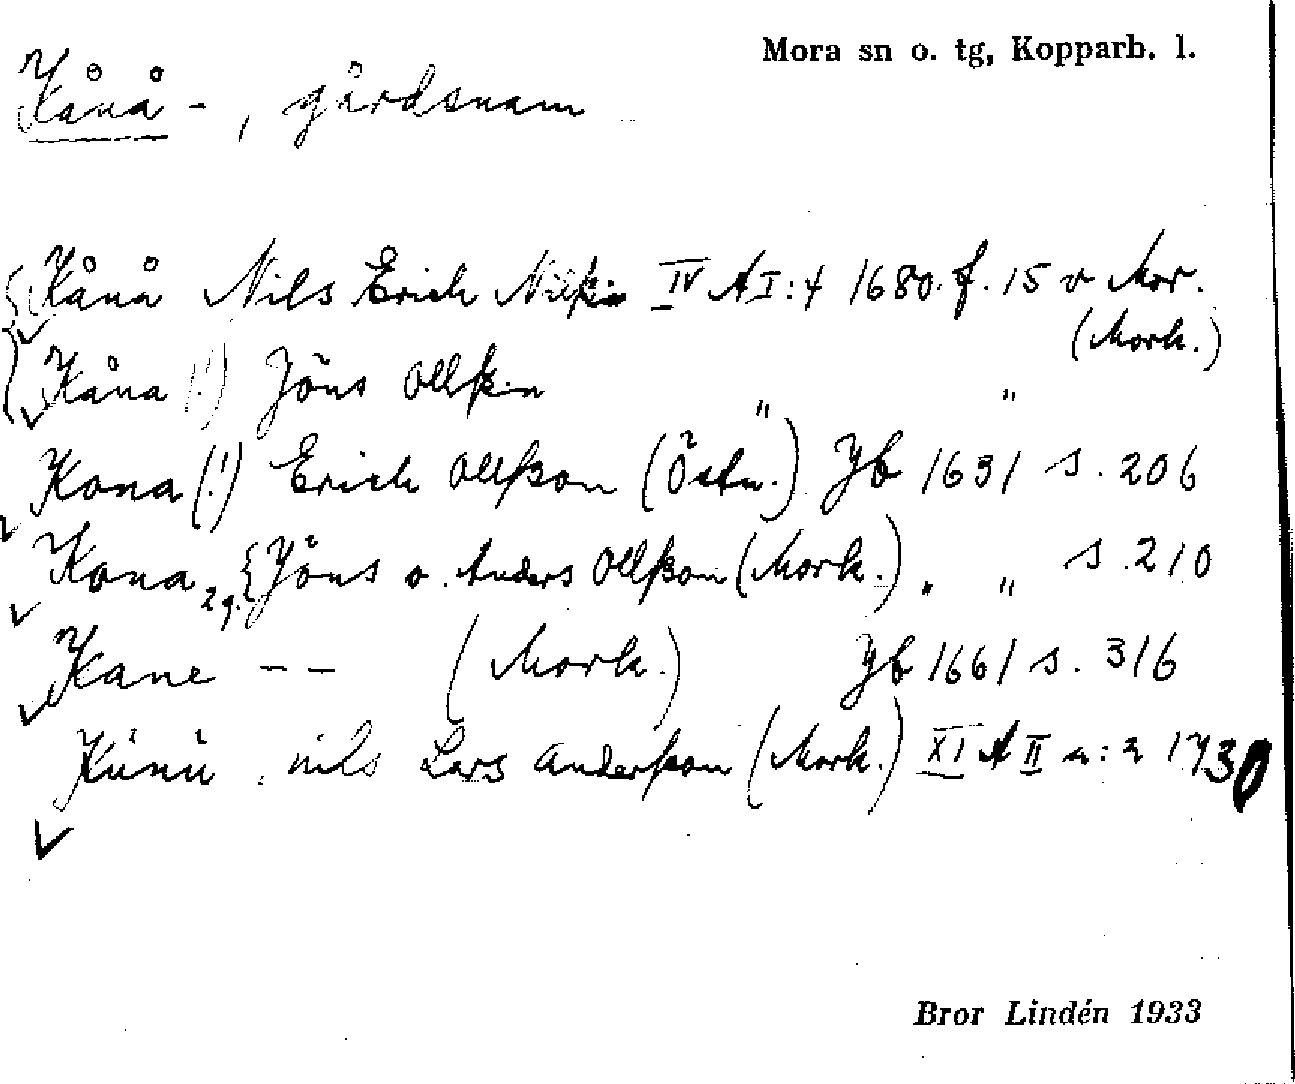 Mora sn o. tg, Kopparb. l.
Kånå-, gårdsnamn
Kånå Nils Erich Nilßin IV A I:4 1680. f. 15 v Mor.
(Mork.)
Kåna (!) Jöns Ollßin " "
Kona (!) Erich Ollßon (Östn.) Jb 1631 s. 206
Kona 2 g. {Jöns o. Anders Ollßon (Mork.) " " s. 210
Kane -- (Mork.) Jb 1661 s. 316
Kůnů nils Lars Anderßon (Mork.) XI A II a:2 1730
Bror Lindén 1933